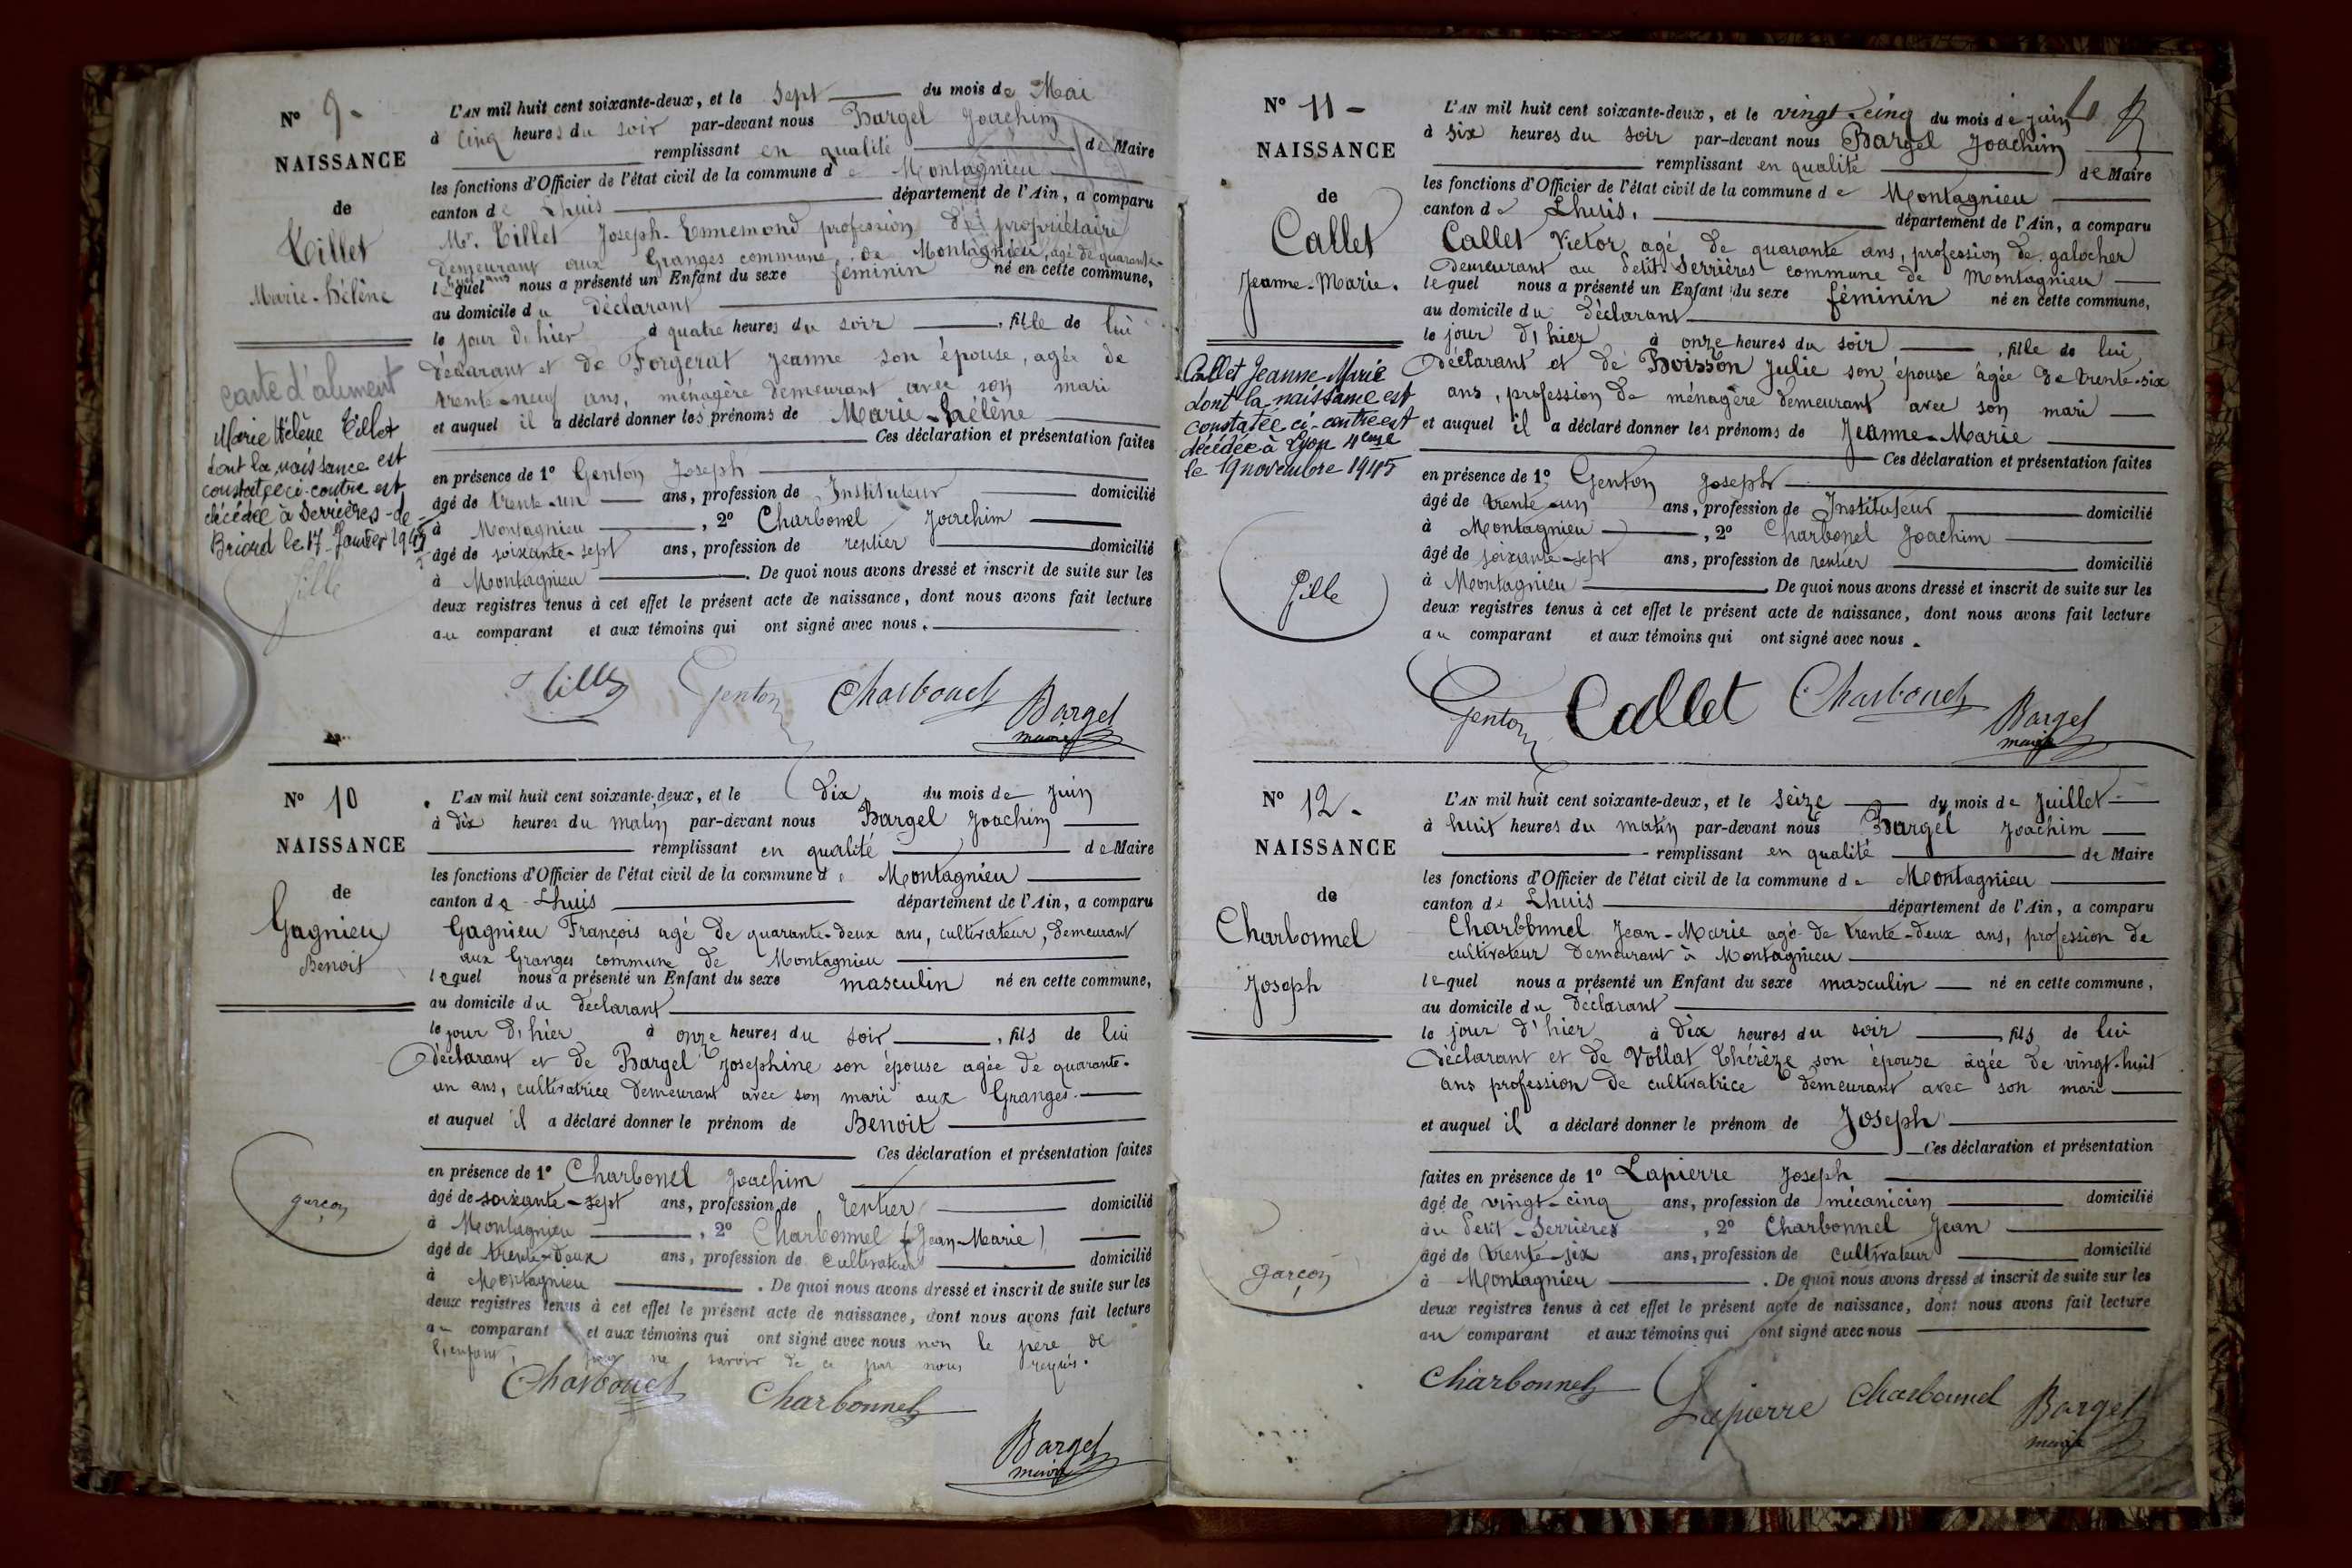 N° 9-
NAISSANCE
de
Tillet
Marie-Hélène
carte d'aliment
Marie Hélène Tillet
dont la naissance est
constatée ci-contre est
décédée à Serrières-de-
Briord le 17 Janvier
fille
L'AN mil huit cent soixante-deux, et le sept du mois de Mai
à cinq heures du soir par-devant nous Bargel Joachim
remplissant en qualité de Maire
les fonctions d'Officier de l'état civil de la commune de Montagnieu
canton de Lhuis département de l'Ain, a comparu
Mr. Tillet Joseph-Ennemond profession de propriétaire
demeurant aux Granges commune de Montagnieu, agé de quarante-
lequel nous a présenté un Enfant du sexe féminin né en cette commune,
au domicile du déclarant
le jour d'hier à quatre heures du soir , fille de lui
déclarant et de Forgerat Jeanne son épouse, agée de
trente-neuf ans, ménagère demeurant avec son mari
et auquel il a déclaré donner les prénoms de Marie-Hélène
Ces déclaration et présentation faites
en présence de 1° Genton Joseph
âgé de trente-un ans, profession de Instituteur domicilié
à Montagnieu , 2° Charbonel Joachim
âgé de soixante-sept ans, profession de rentier domicilié
à Montagnieu . De quoi nous avons dressé et inscrit de suite sur les
deux registres tenus à cet effet le présent acte de naissance, dont nous avons fait lecture
au comparant et aux témoins qui ont signé avec nous.
Tillet Genton Charbonel Bargel
maire
N° 10
NAISSANCE
de
Gagnieu
Benoit
garçon
L'AN mil huit cent soixante-deux, et le dix du mois de juin
à dix heures du matin par-devant nous Bargel Joachim
remplissant en qualité de Maire
les fonctions d'Officier de l'état civil de la commune de Montagnieu
canton de Lhuis département de l'Ain, a comparu
Gagnieu François agé de quarante-deux ans, cultivateur, demeurant
aux Granges commune de Montagnieu
lequel nous a présenté un Enfant du sexe masculin né en cette commune,
au domicile du déclarant
le jour d'hier à onze heures du soir , fils de lui
déclarant et de Bargel Josephine son épouse agée de quarante-
un ans, cultivatrice demeurant avec son mari aux Granges.
et auquel il a déclaré donner le prénom de Benoit
Ces déclaration et présentation faites
en présence de 1° Charbonel Joachim
âgé de soixante-sept ans, profession de rentier domicilié
à Montagnieu , 2° Charbonnel (Jean-Marie)
âgé de trente-deux ans, profession de cultivateur domicilié
à Montagnieu . De quoi nous avons dressé et inscrit de suite sur les
deux registres tenus à cet effet le présent acte de naissance, dont nous avons fait lecture
au comparant et aux témoins qui ont signé avec nous non le père de
l'enfant, pour ne savoir de ce par nous requis.
Charbonel Charbonnel
Bargel
maire
N° 11-
NAISSANCE
de
Callet
Jeanne-Marie.
Callet Jeanne-Marie
dont la naissance est
constatée ci-contre est
décédée à Lyon 4eme
le 19 novembre 1945
fille
L'AN mil huit cent soixante-deux, et le vingt-cinq du mois de juin
à six heures du soir par-devant nous Bargel Joachim
remplissant en qualité de Maire
les fonctions d'Officier de l'état civil de la commune de Montagnieu
canton de Lhuis. département de l'Ain, a comparu
Callet Victor agé de quarante ans, profession de galocher
demeurant au Petit-Serrières commune de Montagnieu
lequel nous a présenté un Enfant du sexe féminin né en cette commune,
au domicile du déclarant
le jour d'hier à onze heures du soir , fille de lui
déclarant et de Boisson Julie son épouse agée de trente-six
ans, profession de ménagère demeurant avec son mari
et auquel il a déclaré donner les prénoms de Jeanne-Marie
Ces déclaration et présentation faites
en présence de 1° Genton Joseph
âgé de trente-un ans, profession de Instituteur domicilié
à Montagnieu , 2° Charbonel Joachim
âgé de soixante-sept ans, profession de rentier domicilié
à Montagnieu De quoi nous avons dressé et inscrit de suite sur les
deux registres tenus à cet effet le présent acte de naissance, dont nous avons fait lecture
au comparant et aux témoins qui ont signé avec nous.
Genton Callet Charbonel Bargel
maire
N° 12-
NAISSANCE
de
Charbonnel
Joseph
garçon
L'AN mil huit cent soixante-deux, et le seize du mois de Juillet
à huit heures du matin par-devant nous Bargel Joachim
remplissant en qualité de Maire
les fonctions d'Officier de l'état civil de la commune de Montagnieu
canton de Lhuis département de l'Ain, a comparu
Charbonnel Jean-Marie agé de trente-deux ans, profession de
cultivateur demeurant à Montagnieu
lequel nous a présenté un Enfant du sexe masculin né en cette commune,
au domicile du déclarant
le jour d'hier à dix heures du soir fils de lui
déclarant et de Vollat Thérèze son épouse agée de vingt-huit
ans profession de cultivatrice demeurant avec son mari
et auquel il a déclaré donner le prénom de Joseph
Ces déclaration et présentation
faites en présence de 1° Lapierre Joseph
âgé de vingt-cinq ans, profession de mécanicien domicilié
au Petit-Serrières , 2° Charbonnel Jean
âgé de trente-six ans, profession de cultivateur domicilié
à Montagnieu . De quoi nous avons dressé et inscrit de suite sur les
deux registres tenus à cet effet le présent acte de naissance, dont nous avons fait lecture
au comparant et aux témoins qui ont signé avec nous
Charbonnel Lapierre Charbonnel Bargel
maire